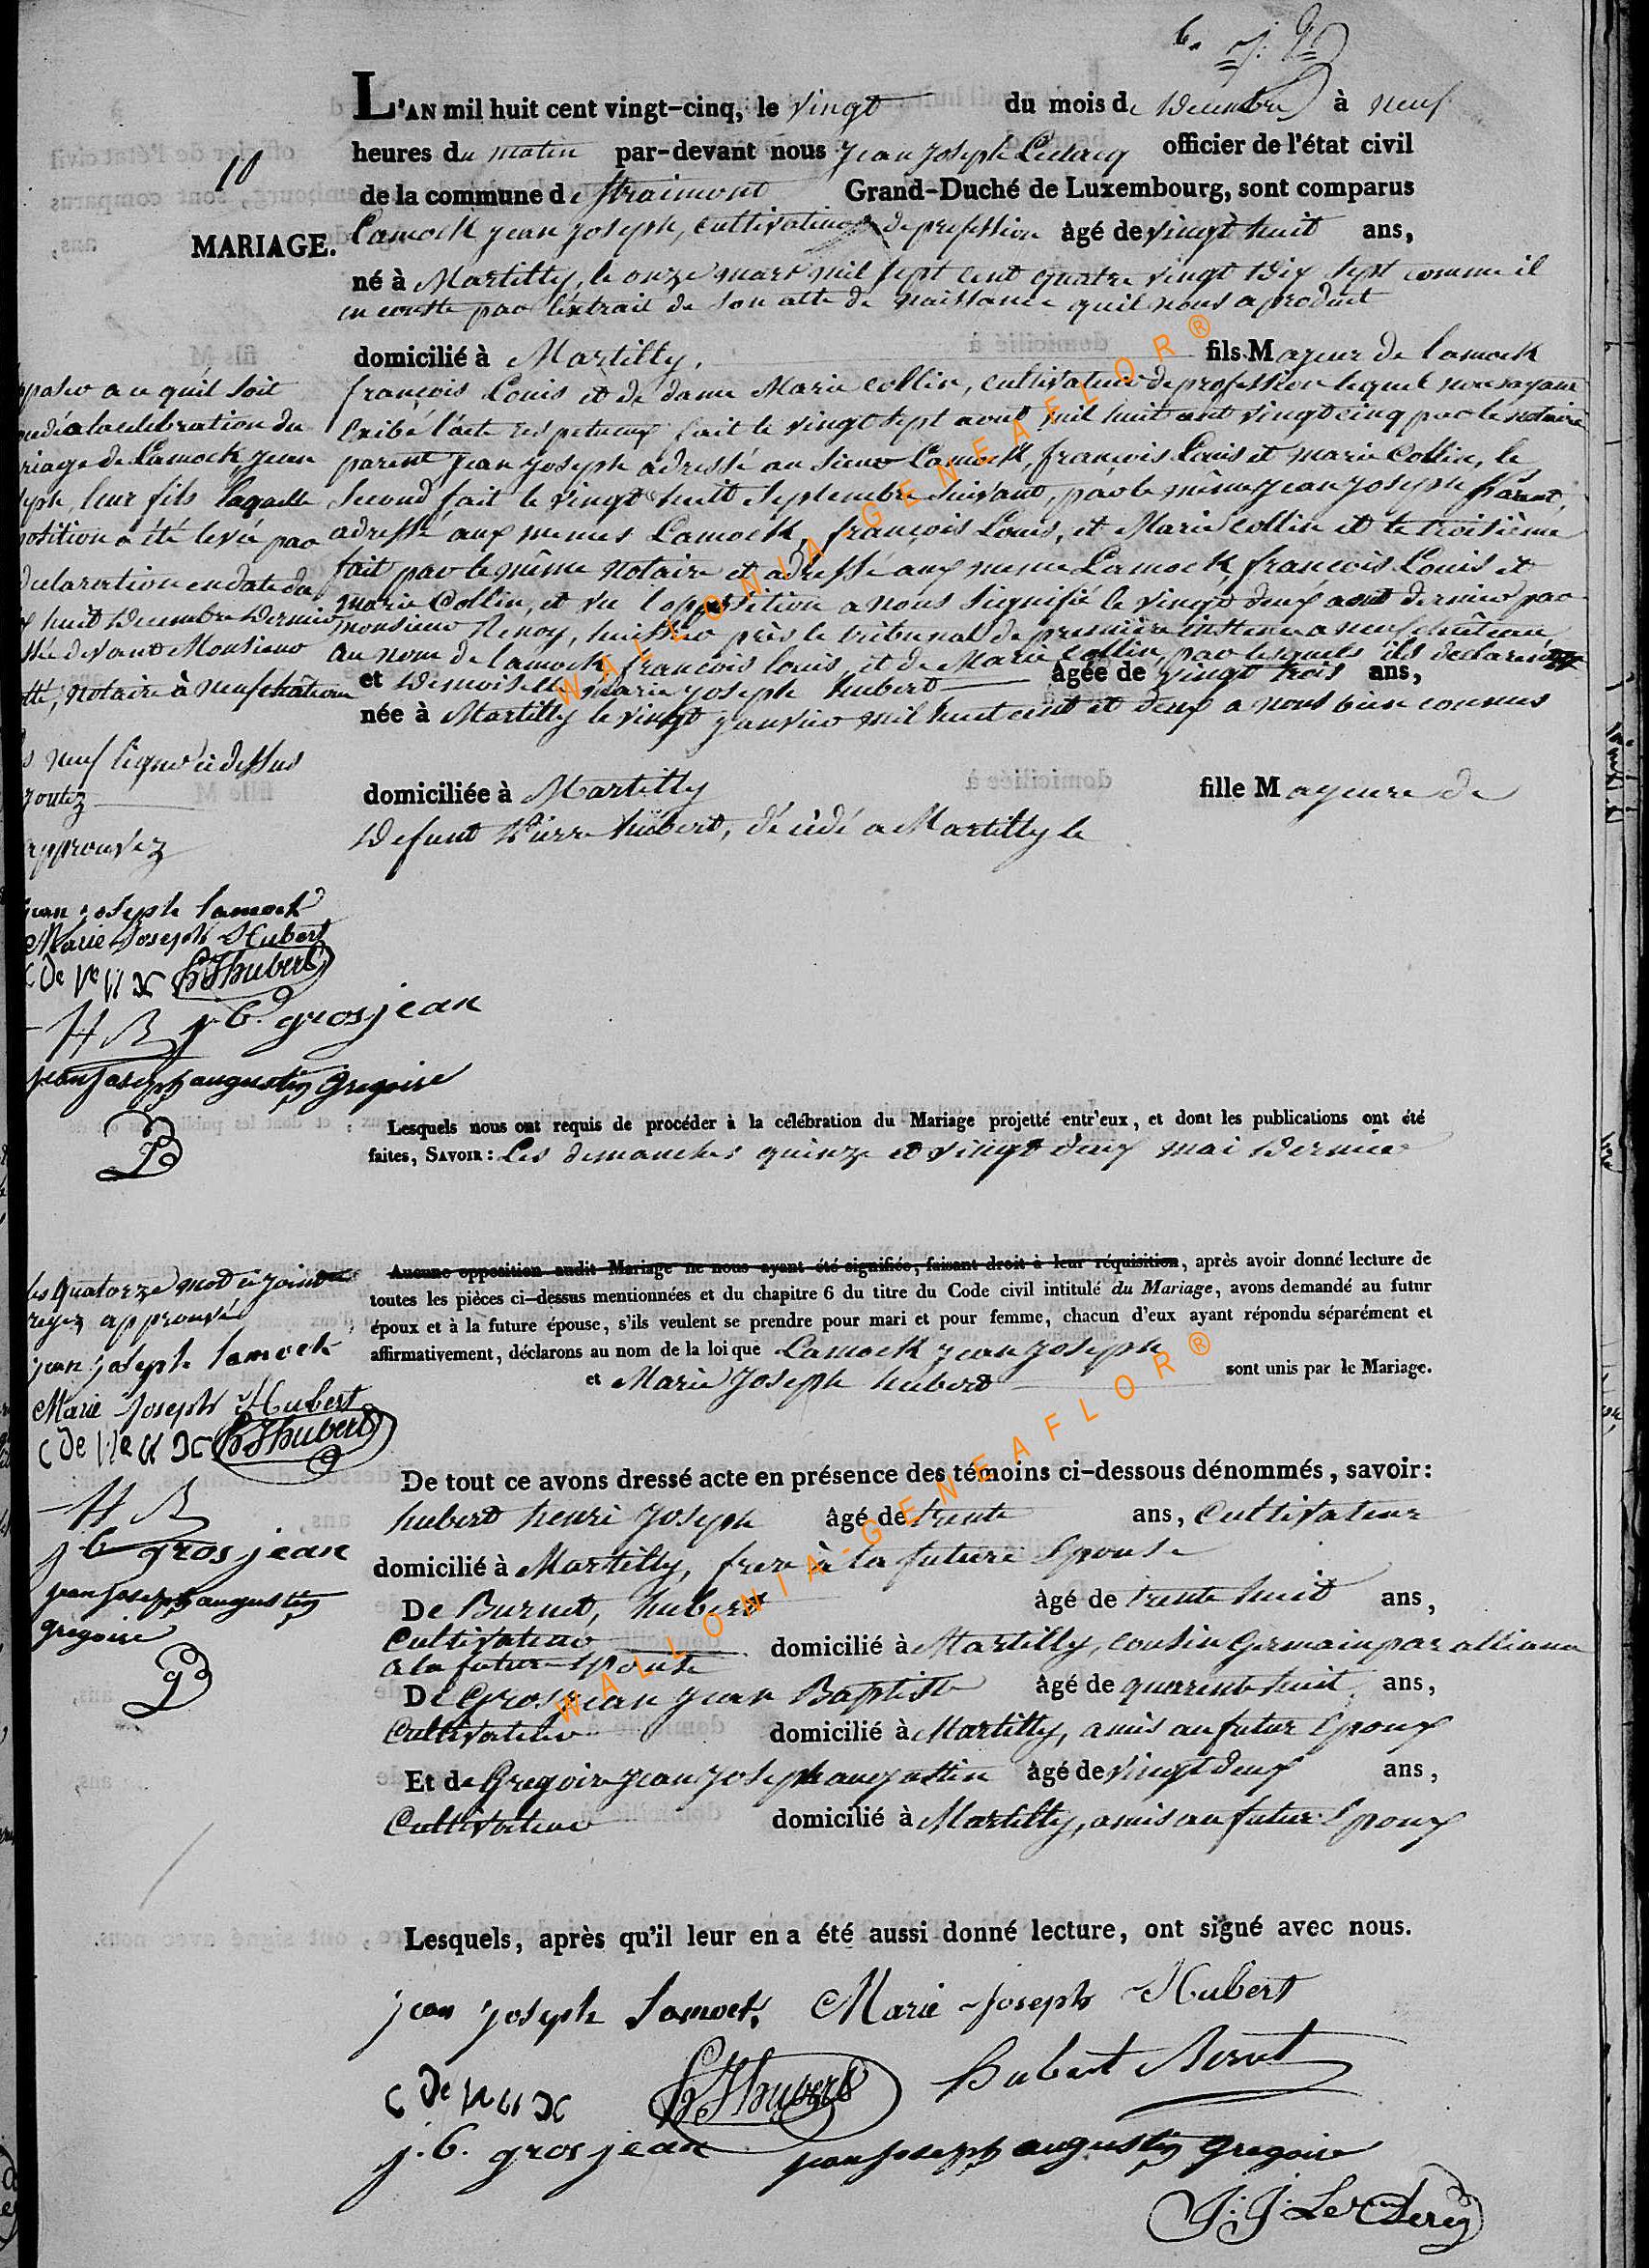 10
MARIAGE.
L'AN mil huit cent vingt-cinq, le vingt du mois de Decembre à neuf
heures du matin par-devant nous jean joseph Leclercq officier de l'état civil
de la commune de Straimont Grand-Duché de Luxembourg, sont comparus
Lamock jean joseph, cultivateur de profession âgé de vingt huit ans,
né à Martilly, le onze mars mil sept cent quatre vingt Dix sept comme il
en conste par l'extrait de son acte de naissance quil nous a produit
domicilié à Martilly, fils Majeur de lamock
françois Louis et de dame Marie collin, cultivateurs de profession lequel nous ayant
exibé l'acte respetueux fait le vingt sept aout mil huit cent vingt cinq par le notaire
parent jean joseph adressé au sieur Lamock, françois Louis et marie Collin, le
second fait le vingt huit septembre suivant, par le même jean joseph Parent,
adressé aux memes Lamock, françois Louis, et Marie collin et le troisième
fait par le même notaire et adressé aux meme Lamock, françois Louis et
marie Collin, et vu l'opposition a nous signifié le vingt deux aout dernier par
monsieur Renoy, huissier près le tribunal de première instence a neufchâteau,
au nom de lamock françois louis, et de Marie Collin, par lesquels ils declarent
et Demoiselle marie joseph hubert âgée de vingt trois ans,
née à Martilly le vingt janvier mil huit cent et deux a nous bien connus
domiciliée à Martilly fille Majeure de
Defunt Pierre hubert, décédé a Martilly le
pposer a ce quil soit
cédé a la celebration du
riage de Lamock jean
seph, leur fils laquelle
position a été levée par
declaration en date du
x huit Decembre Dernier
ssée devant Monsieur
notaire à neufchâteau
s neuf lignes ci dessus
joutez
approuvez
jean joseph lamock
Marie Joseph Hubert
HJhubert
HB j b. grosjean
jean joseph augustin gregoire
Lesquels nous ont requis de procéder à la célébration du Mariage projetté entr'eux, et dont les publications ont été
faites, SAVOIR: Les dimanches quinze et vingt deux mai Dernier
Aucune opposition audit Mariage ne nous ayant été signifiée, faisant droit à leur réquisition, après avoir donné lecture de
toutes les pièces ci-dessus mentionnées et du chapitre 6 du titre du Code civil intitulé du Mariage, avons demandé au futur
époux et à la future épouse, s'ils veulent se prendre pour mari et pour femme, chacun d'eux ayant répondu séparément et
affirmativement, déclarons au nom de la loi que Lamock jean joseph
et Marie Joseph hubert sont unis par le Mariage.
les quatorze mot ci joint
reyez approuvés
jean joseph lamock
Marie Joseph Hubert
HJhubert
HB
j b grosjean
jean joseph augustin
gregoire
De tout ce avons dressé acte en présence des témoins ci-dessous dénommés, savoir:
hubert henri joseph âgé de trente ans, Cultivateur
domicilié à Martilly, frere à la future Epouse
De Burnet, hubert âgé de trente huit ans,
Cultivateur domicilié à Martilly, cousin Germain par alliance
a la future Epouse
De Grosjean jean Baptiste âgé de quarente huit ans,
Cultivateur domicilié à Martilly, amis au futur Epoux
Et de Gregoire jean joseph augustin âgé de vingt deux ans,
Cultivateur domicilié à Martilly, amis au futur Epoux
Lesquels, après qu'il leur en a été aussi donné lecture, ont signé avec nous.
jean joseph lamock, Marie Joseph Hubert
HJhubert hubert
j. b. grosjean jean joseph augustin gregoire
J: J: LeClercq
WALLONIA-GENEAFLOR®
WALLONIA-GENEAFLOR®